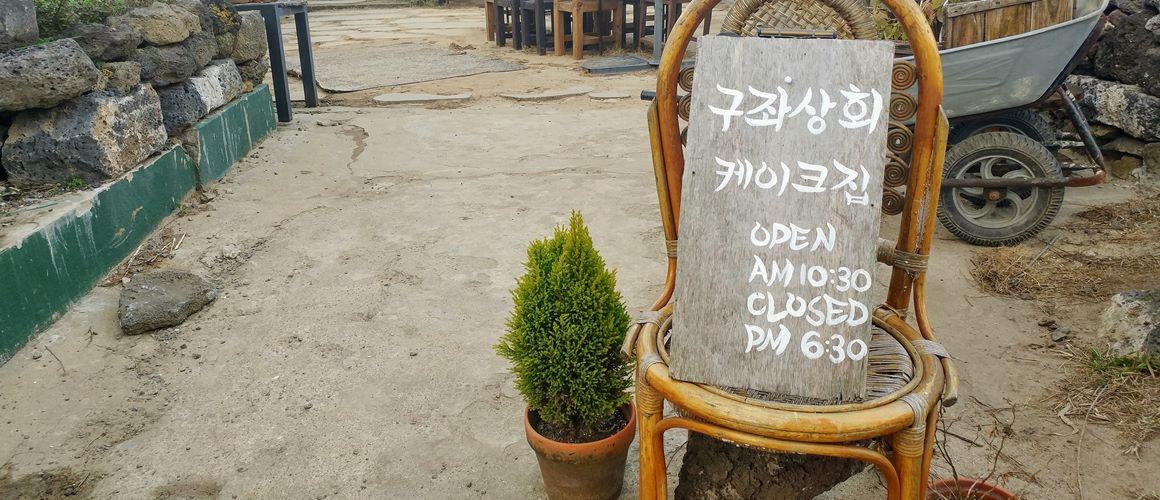 구좌상회
케이크집
OPEN
AM 10:30
CLOSED
PM 6:30